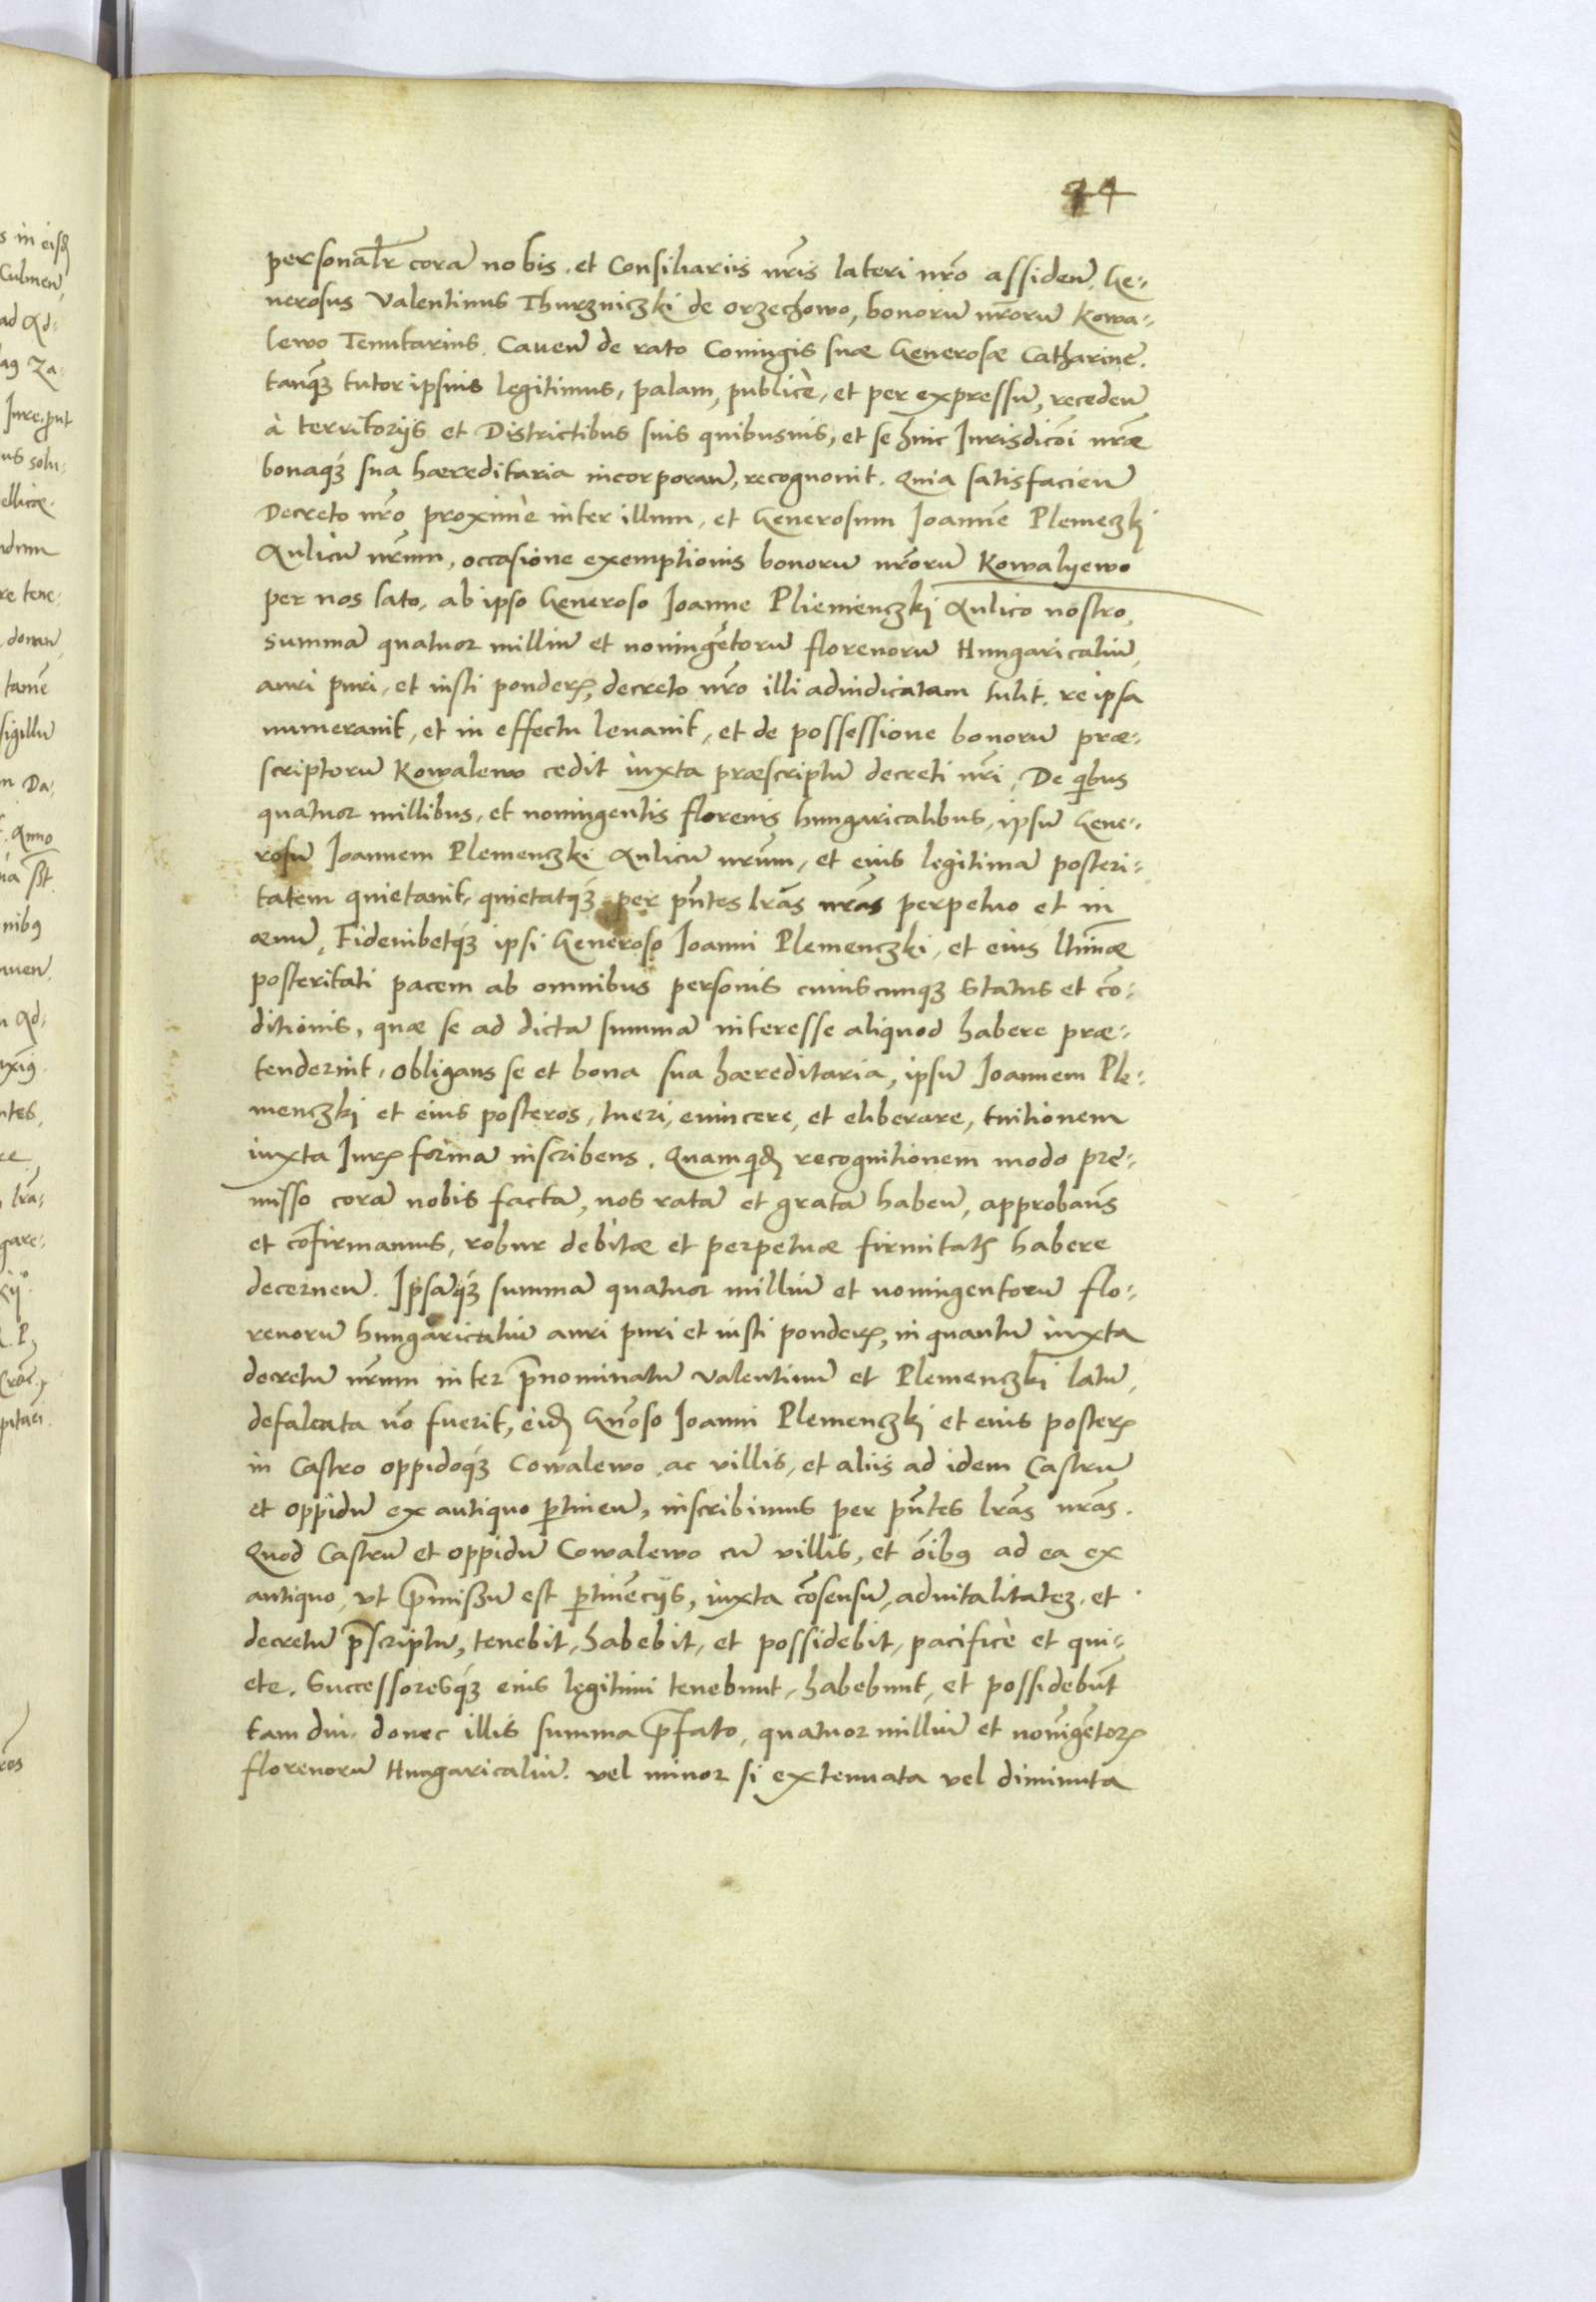 44
personalr̃ corã nobis. et Consiliariis nr̃is lateri nr̃o assideñ. Ge-
nerosus Valentinus Thurzniczki de orzechowo, bonorũ nr̃orũ Kowa-
lewo Tenutarius. Caueñ de rato Coniugis suæ Generosæ Catharinę.
tanq̃ꝫ tutor ipsius legitimus, palam, publicè, et per expressũ, recedeñ
à territoriis et Districtibus suis quibusuis, et se huic Iurisdicõi nr̃æ
bonaq́ꝫ sua hæreditaria incorporañ, recognouit. Quia satisfacieñ
Decreto nr̃o proximè inter illum, et Generosum Ioannẽ Plemeczki
Aulicũ nr̃um, occasione exemptionis bonorũ nr̃orũ Kowalyewo
per nos lato, ab ipso Generoso Ioanne Pliemienczki Aulico nostro,
summã quatuor milliũ et noningẽtorũ florenorũ Hungaricaliũ,
auri puri, et iusti ponderꝭ, decreto nr̃o illi adiudicatam tulit. re ipsa
numerauit, et in effectu leuauit, et de possessione bonorũ præ-
scriptorũ Kowalewo cedit iuxta præscriptũ decreti nr̃i, De qĩbus
quatuor millibus, et noningentis florenis hungaricalibus, ipsũ Gene-
rosũ Ioannem Plemenczki Aulicũ nr̃um, et eius legitimã posteri-
tatem quietauit, quietatq́ꝫ per pñtes lr̃as nr̃as perpetuo et in
æuũ, Fideiubetq́ꝫ ipsi Generoso Ioanni Plemenczki, et eius ltĩmæ
posteritati pacem ab omnibus personis cuiuscunqꝫ status et cõ-
ditionis, quæ se ad dictã summã interesse aliquod habere præ-
tenderint, obligans se et bona sua hæreditaria, ipsũ Ioannem Ple-
menczki et eius posteros, tueri, euincere, et eliberare, tuitionem
iuxta Iurꝭ formã inscribens. Quamqĩd recognitionem modo prę-
misso corã nobis factã, nos ratã et gratã habeñ, approbaũs
et cõfirmamus, robur debitæ et perpetuæ firmitatꝭ habere
decerneñ. Ipsãq́ꝫ summã quatuor milliũ et noningentorũ flo-
renorũ hungaricaliũ auri puri et iusti ponderꝭ, in quantũ iuxta
decretũ nr̃um inter p̃nominatũ Valentinũ et Plemenczki latũ,
defalcata nõ fuerit, eid̃ Gñoso Ioanni Plemenczki et eius posterꝭ
in Castro oppidoq́ꝫ Cowalewo, ac villis, et aliis ad idem Castrũ
et oppidũ ex antiquo ꝑtineñ, inscribimus per pñtes lr̃as nr̃as.
Quod Castrũ et oppidũ Cowalewo cũ villis, et õibꝰ ad ea ex
antiquo, vt p̃missũ est ꝑtinẽciis, iuxta cõsensũ, aduitalitatẽ, et
decretũ p̃scriptũ, tenebit, habebit, et possidebit, pacificè et qui-
ete. Successoresq́ꝫ eius legitimi tenebunt, habebunt, et possidebũt
tam diu, donec illis summa p̃fato, quatuor milliũ et nonigẽtorꝝ
florenorũ Hungaricaliũ. vel minor si extenuata vel diminuta